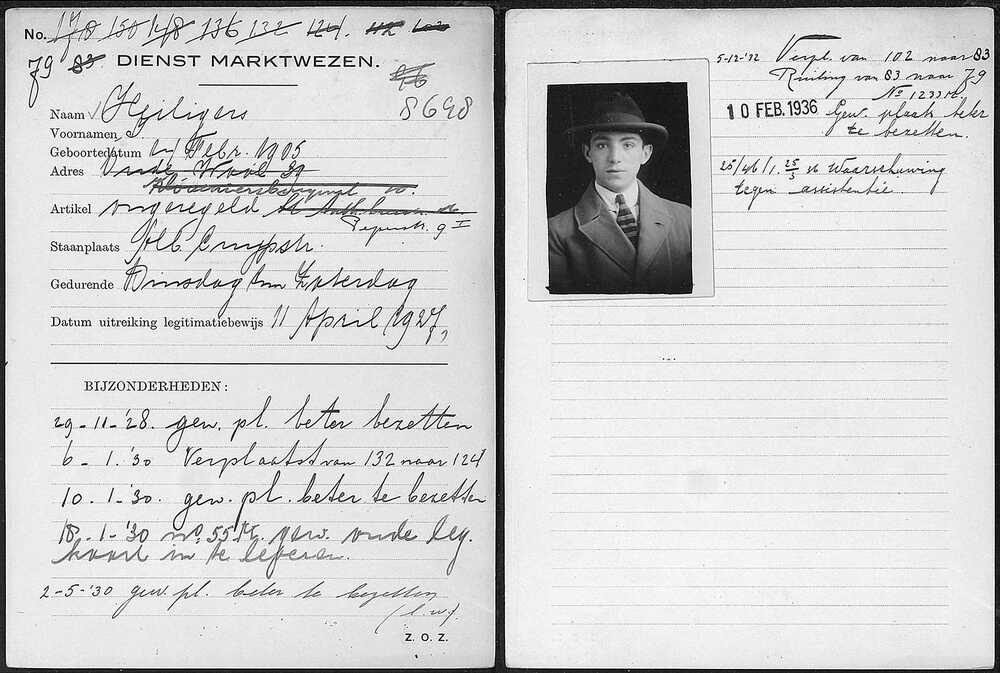 No. 178 150 148 136 132 124. 112 102
79 83 DIENST MARKTWEZEN.
8698
Naam Heiligers
Voornamen
Geboortedatum Febr. 1905
Adres Oude 39
Artikel ongeregeld
Peperstr. 9 I
Staanplaats Alb. Cuypstr.
Gedurende Dinsdag t/m Zaterdag
Datum uitreiking legitimatiebewijs 11 April 1927,
BIJZONDERHEDEN:
29-11-'28. gew. pl. beter bezetten
6-1.'30 Verplaatst van 132 naar 124
10.1-'30. gew. pl. beter te bezetten
18-1-'30 no. 55 gew. oude leg.
kaart in te leveren.
2-5-'30 gew. pl. beter te bezetten
(l.w).
Z. O. Z.
5-12-'32 Verpl. van 102 naar 83
Ruiling van 83 naar 79
No 1233
10 FEB. 1936 Gew. plaats beter
te bezetten.
25/46/1. 25/3 Waarschuwing
tegen assistentie.